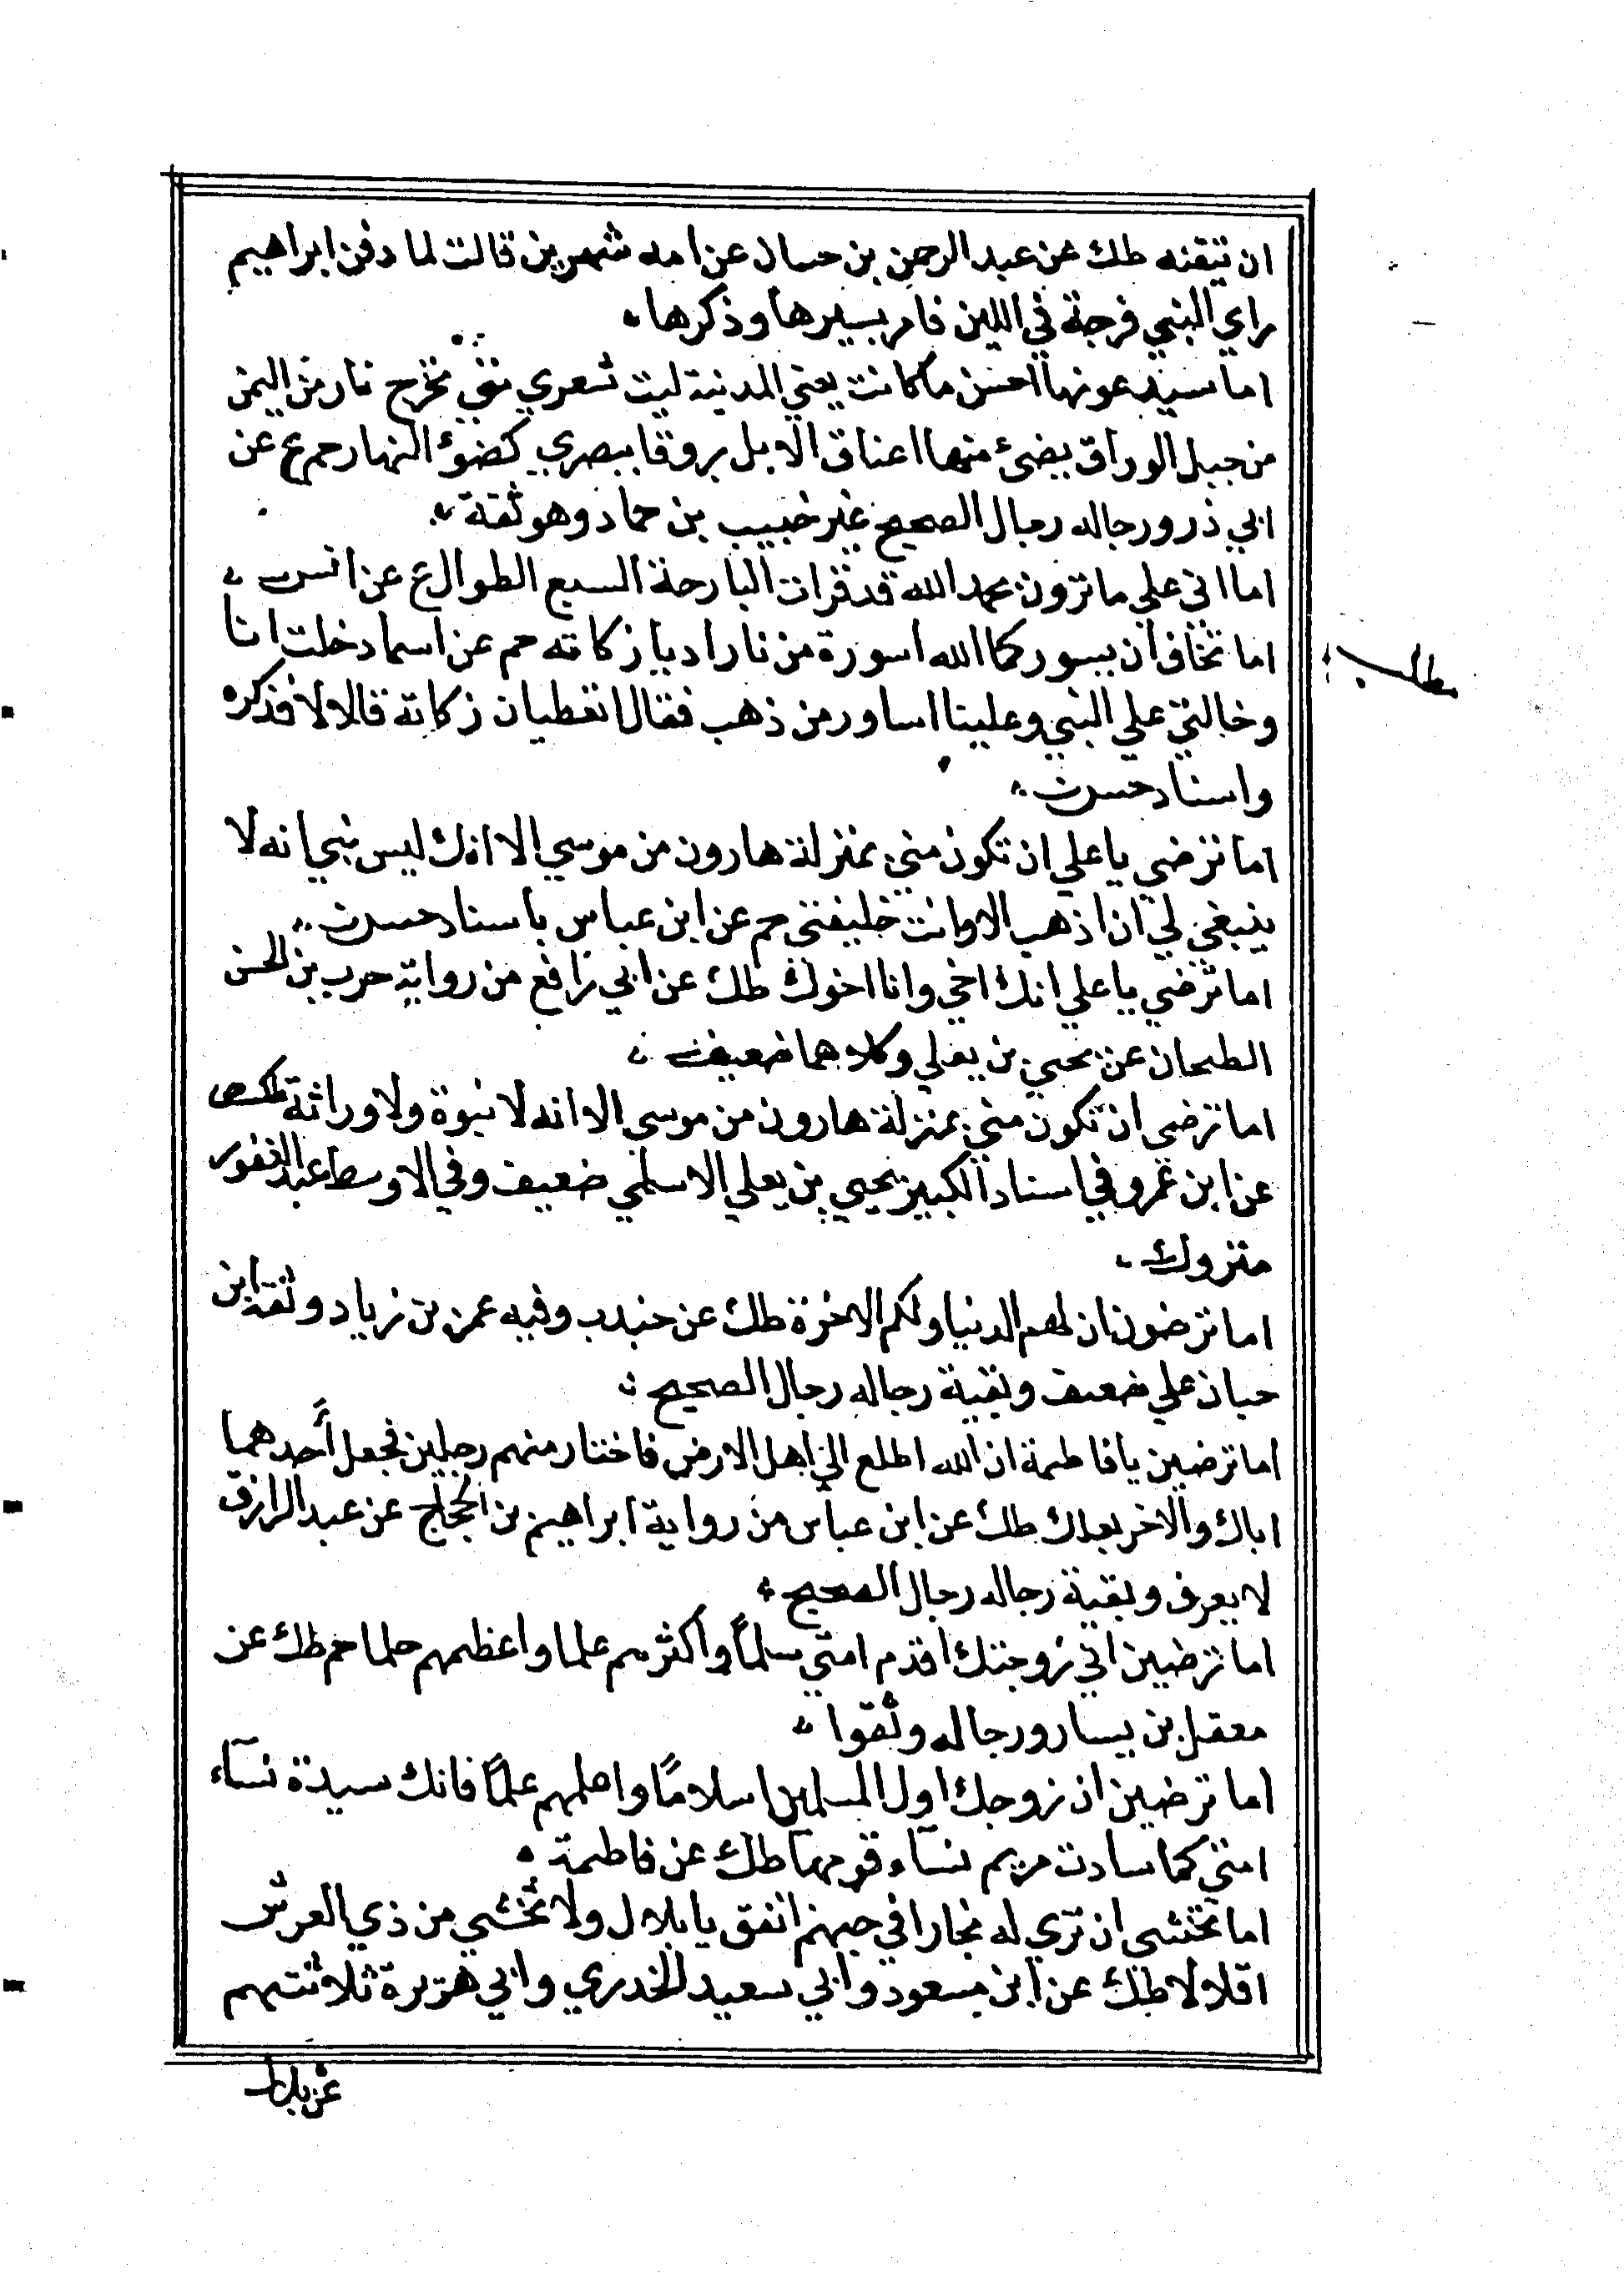 ان تيقنه طك عن عبد الرحمن بن حسان عن امه شهرين قالت لما دفن ابراهيم
راي النبي فرجة في اللبن فامر بسيرها وذكرها
اما سيدعونها احسن ما كانت يعني المدنية ليت شعري متي تخرج نار من اليمن
من جبل الوراق يضئ منها اعناق الابل بروقا ببصري كضوء النهار حم ع عن
ابي ذر ورجاله رجال الصحيح غير خبيب بن حماد وهو ثقة
اما اني علي ما ترون بحمد الله قد قرات البارحة السبع الطوال ع عن انس
اما تخاف ان يسوركما الله اسورة من نار اديا زكاته حم عن اسما دخلت انا
مطلب
وخالتي علي النبي وعلينا اساور من ذهب فقال اتعطيان زكاتة قالا لا فذكره
واسناد حسن
اما ترضي يا علي ان تكون مني بمنزلة هارون من موسي الا انك ليس بنبي انه لا
ينبغي لي ان اذهب الا وانت خليفتي حم عن ابن عباس باسناد حسن
اما ترضي يا علي انك اخي وانا اخوك طك عن ابي رافع من رواية حرب بن الحسن
الطحان عن يحيي بن يعلي وكلاهما ضعيف
اما ترضى ان تكون مني بمنزلة هارون من موسي الا انه لا نبوة ولا وراثة طكس
عن ابن عمرو في اسناد الكبير يحيي بن يعلي الاسلمي ضعيف وفي الاوسط عبد الغفور
متروك
اما ترضون ان لهم الدنيا ولكم الاخرة طك عن جندب وفيه عمر بن زياد وثقه ابن
حبان علي ضعف وبقية رجاله رجال الصحيح
اما ترضين يا فاطمة ان الله اطلع الي اهل الارض فاختار منهم رجلين فجعل أحدهما
اباك والاخر بعلك طك عن ابن عباس من رواية ابراهيم بن الحجاج عن عبد الرازق
لا يعرف وبقية رجاله رجال الصحيح
اما ترضين اني زوجتك اقدم امتي سلماً واكثرهم علما واعظمهم حلما حم طك عن
معقل بن يسار ورجاله وثقوا
اما ترضين ان زوجك اول المسلمين اسلامًا واعلمهم علمًا فانك سيدة نسآء
امتي كما سادت مريم نسآء قومها طك عن فاطمة
اما تخشى ان تري له بخارا في جهنم انفق يا بلال ولا تخشي من ذي العرش
اقلالا طك عن ابن مسعود وابي سعيد الخدري وابي هريرة ثلاثتهم
عن بلال